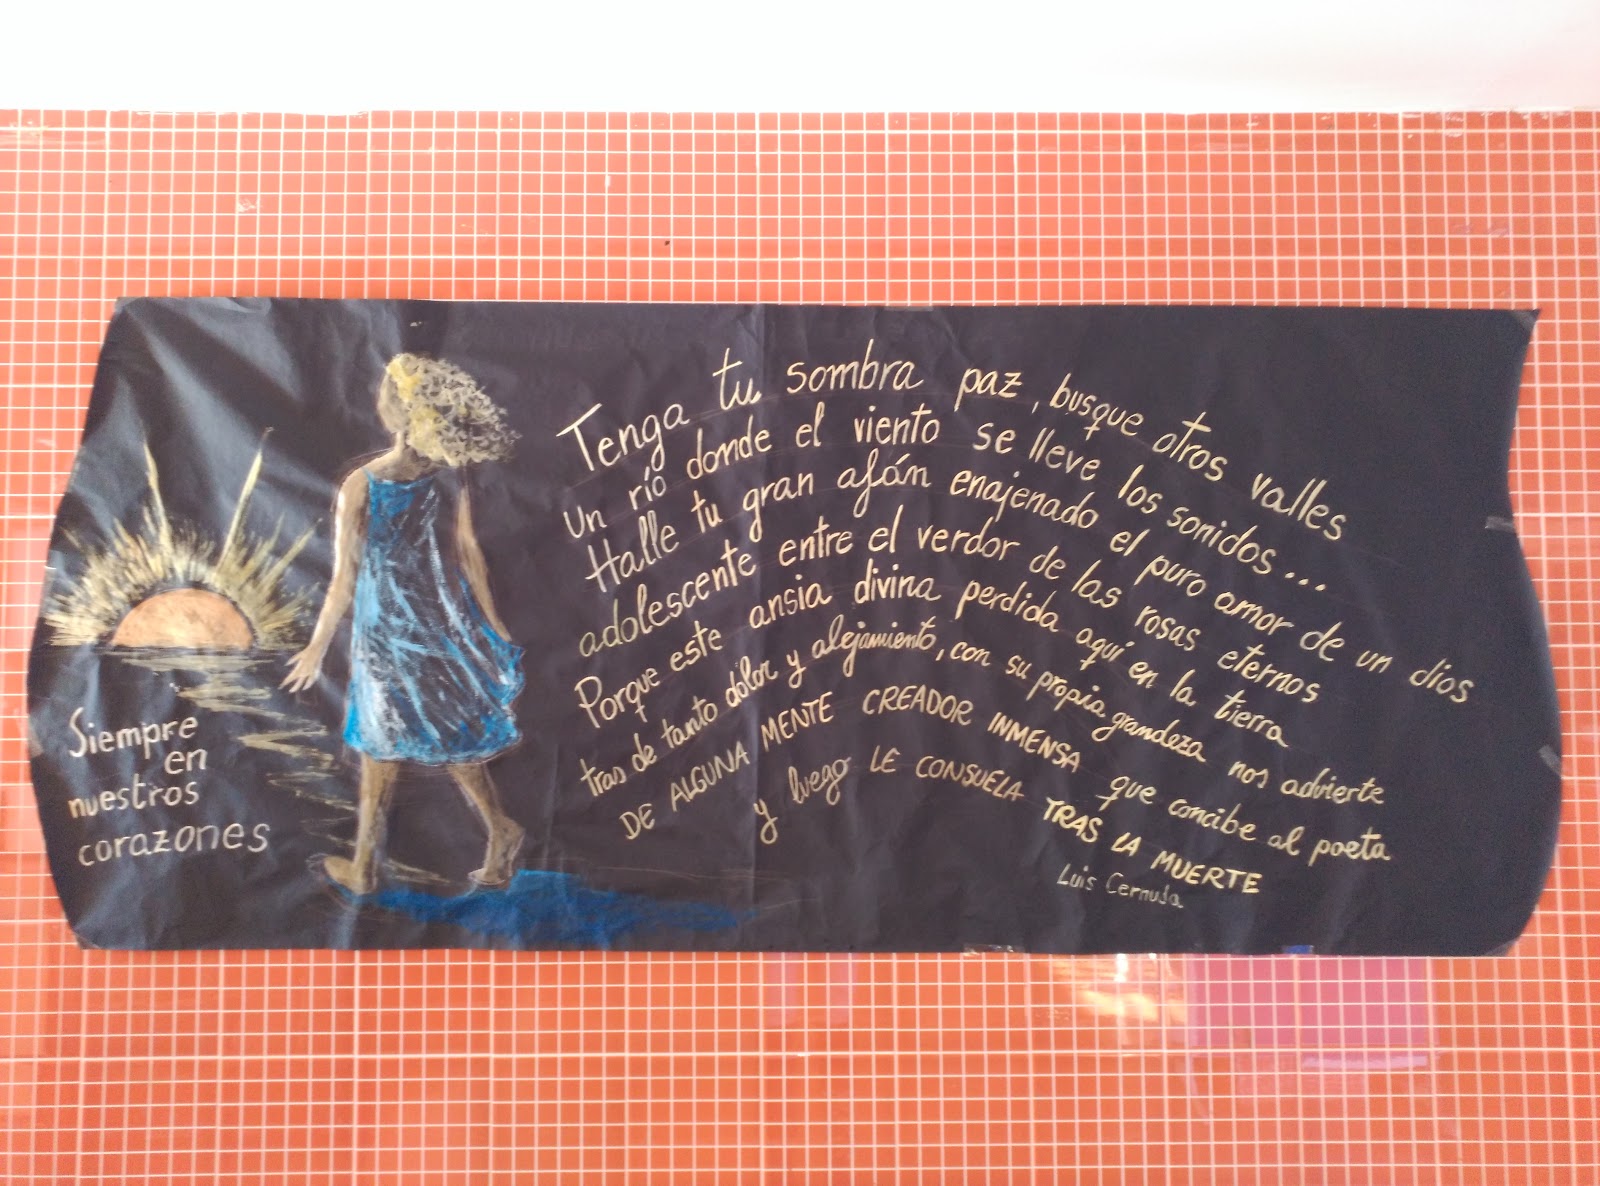 Tenga tu sombra paz, busque otros valles
Un río donde el viento se lleve los sonidos...
Halle tu gran afán enajenado el puro amor de un dios
adolescente entre el verdor de las rosas eternos
Porque este ansia divina perdida aquí en la tierra
tras de tanto dolor y alejamiento, con su propia grandeza nos advierte
DE ALGUNA MENTE CREADOR INMENSA que concibe al poeta
y luego LE CONSUELA TRAS LA MUERTE
Luis Cernuda
Siempre
en
nuestros
corazones